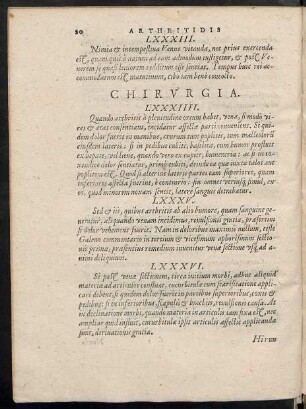 20 ARTHRITIDIS
LXXXIII.
Nimia & intempestiua Venus vitanda, nec prius exercenda
est, quam quis à natura ad eam admodum instigetur, & post Ve-
nerem se quis leuiorem
accommodatum est matutinum, cibo iam bene concocto.
CHIRVRGIA.
LXXXIIII.
Quando arthritis à plenitudine ortum habet, vena, si modo vi-
res & ætas consentiant, incidatur affectæ parti conueniens. Si qui-
dem dolor fuerit in manibus, crurum aut poplitis, tum malleolorum
sinistri lateris: si in pedibus cubiti, basilica, cum humor prosluit
ex hepate, vel liene, quando verò ex capite, humeraria: ac si in
cauitate dolor sentiatur, primum cubiti, deinde ea quæ iuxta talos aut
poplites est. Quod si alterius lateris partes tam superiores, quam
inferiores affectæ fuerint, è contrario: sin omnes vtriusque simul, eius,
quod minus incommodi sentit, latere sanguis detrahatur.
LXXXV.
Sed & iis, quibus arthritis ab alio humore, quam sanguine ge-
neratur, aliquando venam incidimus, reuulsionis gratia, præsertim
si dolor vehemens fuerit. Nam in doloribus maximis nullum, teste
Galeno commentario in tertium & vicesimum aphorismum sectio-
nis primæ, præsentius remedium inuenitur venæ sectione vsque ad ani-
mi deliquium.
LXXXVI.
Si post venæ sectionem, circa initium morbi, adhuc aliquid
materiæ ad articulos confluat, cucurbitulæ cum scarificatione appli-
cari debent, si quidem dolor fuerit in partibus superioribus, genis &
pedibus: si in inferioribus, scapulis & brachiis, reuulsionis causa. At
in declinatione morbi, quando materia in articulis iam fixa est, nec
amplius quid influit, cucurbitula ipsis articulis affectis applicanda
sunt, deriuationis gratia.
Hirun